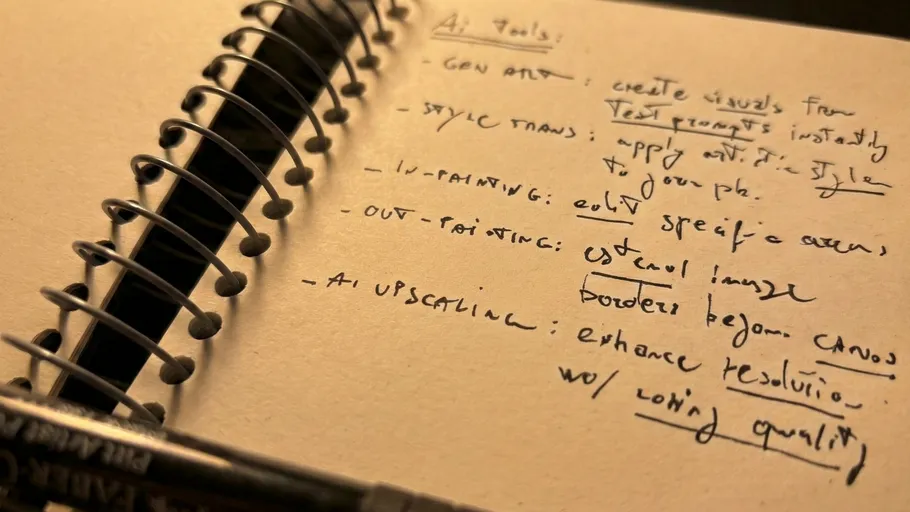 Ai Tools:
- GEN ART : create visuals from
text prompts instantly
- STYLE TRANS : apply artistic style
to your ph.
- IN-PAINTING : edit specific areas
- OUT-PAINTING : extend image
borders beyon. CANVAS
- AI UPSCALING : enhance resolution
wo/ losing quality
FABER-C
Pitt Artist P